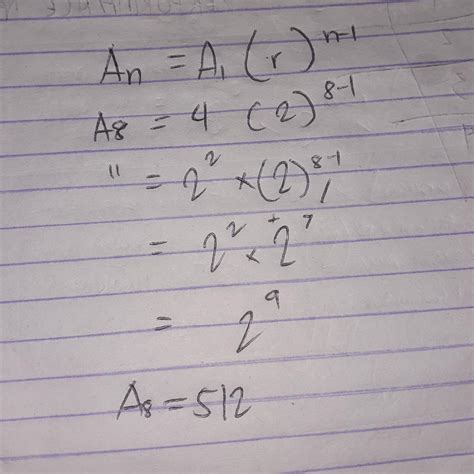 An = A₁ (r)ⁿ⁻¹
A8 = 4 (2)⁸⁻¹
" = 2² × (2)⁸⁻¹,
= 2² × 2⁺⁷
= 2⁹
A₈ = 512